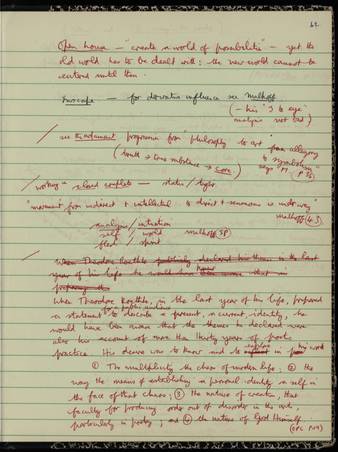 62.
Open house — "create a world of possibilities" — yet the
old world has to be dealt with: the new world cannot be
entered until then.
— for donative influence see Malkoff
(— his "I to eye"
analysis not bad)
see programme from "philosophy to art"
from allegory
to symbolism
says M
working — closed couplets — static / tight
"movement from indirect & intellectual to direct & sensuous is underway"
Malkoff (45)
analysis / intuition
self / world Malkoff 58
flesh / spirit
When Theodore Roethke publicly declared his in the last
year of his life he would have been that in
preparing the
When Theodore Roethke, in the last year of his life, prepared
for a public audience
a statement to describe a present, a current, identity, he
would have been aware that the themes he declared were
also his account of more than thirty years of poetic
practice. His desire was to know and to explore in his work
① The multiplicity the chaos of modern life; ② the
way the means of establishing a personal identity a self in
the face of that chaos; ③ the nature of creation, that
faculty for producing order out of disorder in the arts,
particularly in poetry; and ④ the nature of God Himself.